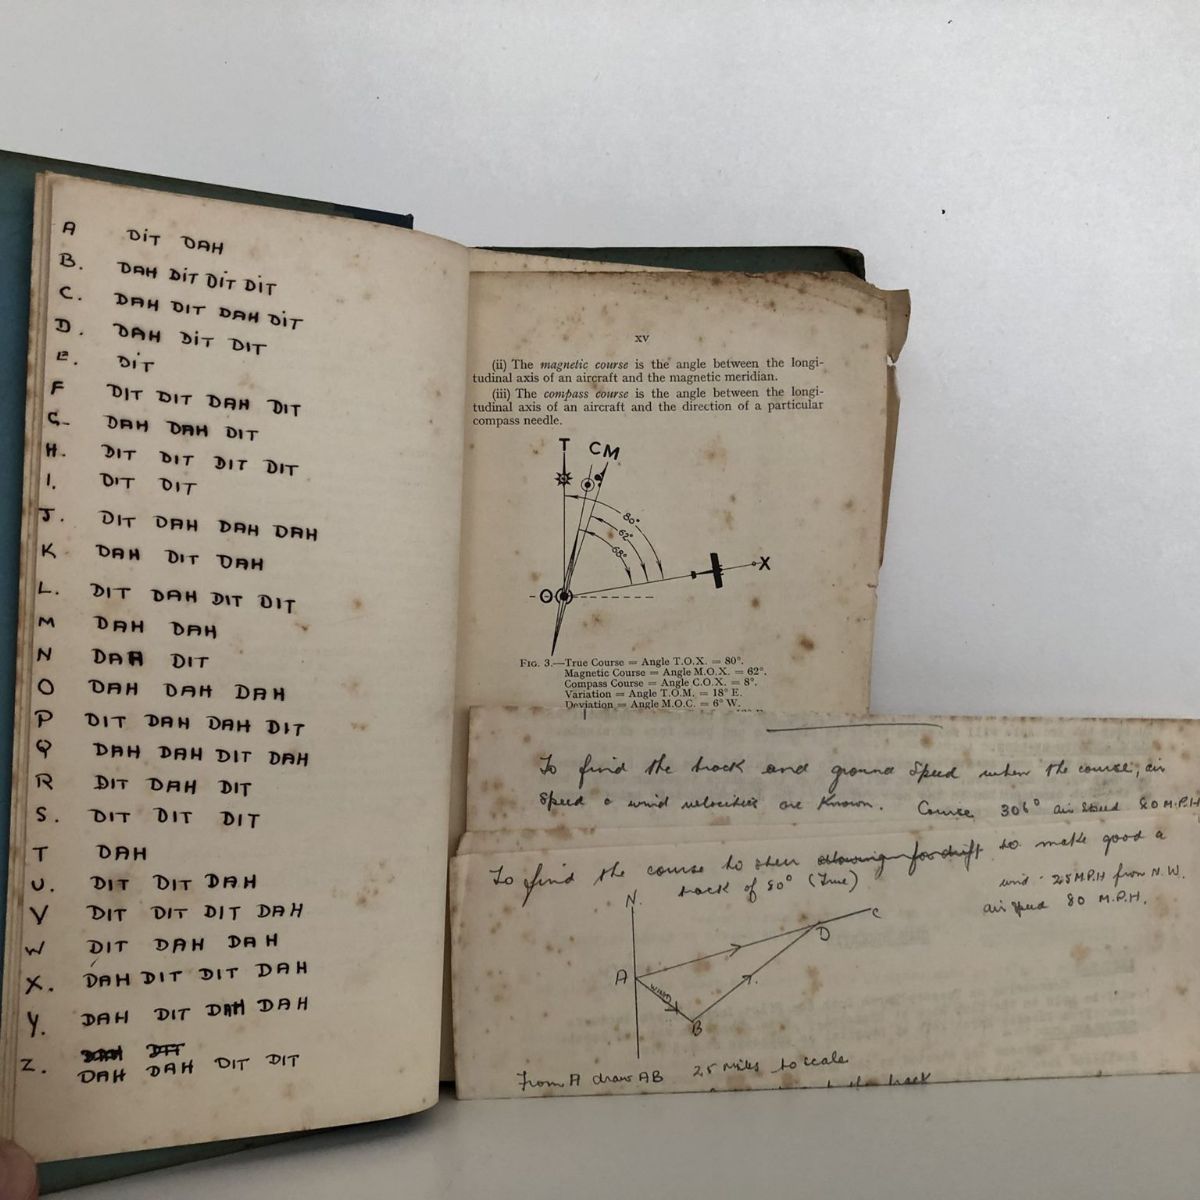 A DIT DAH
B. DAH DIT DIT DIT
C. DAH DIT DAH DIT
D. DAH DIT DIT
E. DIT
F DIT DIT DAH DIT
G- DAH DAH DIT
H. DIT DIT DIT DIT
I. DIT DIT
J. DIT DAH DAH DAH
K DAH DIT DAH
L. DIT DAH DIT DIT
M DAH DAH
N DAH DIT
O DAH DAH DAH
P DIT DAH DAH DIT
Q DAH DAH DIT DAH
R DIT DAH DIT
S. DIT DIT DIT
T DAH
U. DIT DIT DAH
V DIT DIT DIT DAH
W DIT DAH DAH
X. DAH DIT DIT DAH
Y. DAH DIT DAH DAH
DAH DIT
Z. DAH DAH DIT DIT
xv
(ii) The magnetic course is the angle between the longi-
tudinal axis of an aircraft and the magnetic meridian.
(iii) The compass course is the angle between the longi-
tudinal axis of an aircraft and the direction of a particular
compass needle.
T C M
80°
62°
68°
X
O
FIG. 3.—True Course = Angle T.O.X. = 80°.
Magnetic Course = Angle M.O.X. = 62°.
Compass Course = Angle C.O.X. = 8°.
Variation = Angle T.O.M. = 18° E.
Deviation = Angle M.O.C. = 6° W.
To find the track and ground speed when the course, air
speed & wind velocities are known. Course 306° air speed 80 M.P.H
To find the course to steer allowing for drift to make good a
track of 80° (True)
wind 25 M.P.H from N.W.
air speed 80 M.P.H.
N.
C
D
A
WIND
B
From A draw AB 25 miles to scale